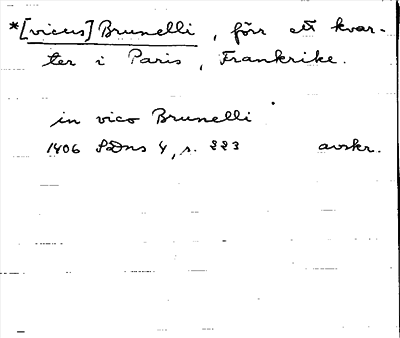 *[vicus] Brunelli, förr ett kvar-
ter i Paris, Frankrike.
in vico Brunelli
1406 SDns 4, s. 223 avskr.